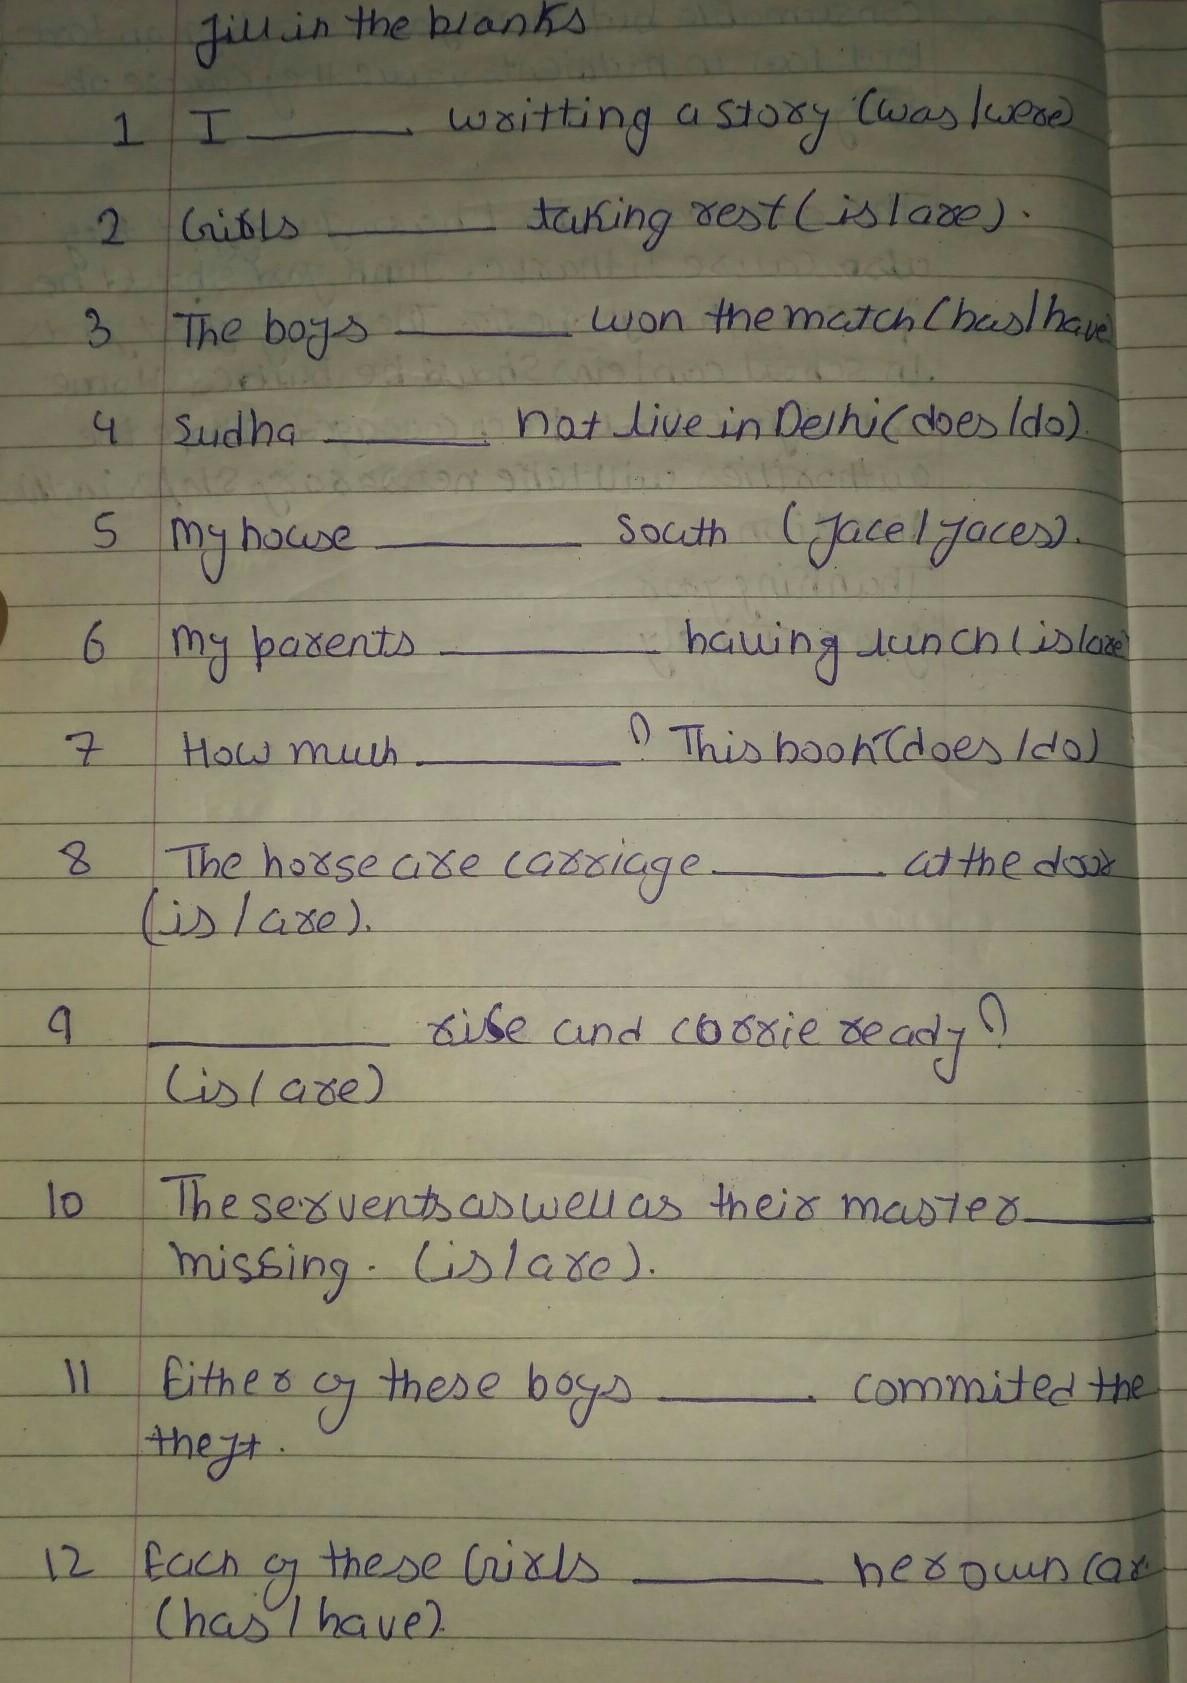 fill in the blanks
1 I ______ writting a story (was/were)
2 Girls ______ taking rest (is/are).
3 The boys ______ won the match (has/have)
4 Sudha ______ not live in Delhi (does/do).
5 My house ______ south (face/faces).
6 My parents ______ having lunch (is/are)
7 How much ______? This book (does/do)
8 The horse are carriage ______ at the door
(is/are).
9 ______ rise and corrie ready?
(is/are)
10 The servents as well as their master ______
missing. (is/are).
11 Either of these boys ______ commited the
theft.
12 Each of these Girls ______ her own car
(has/have).